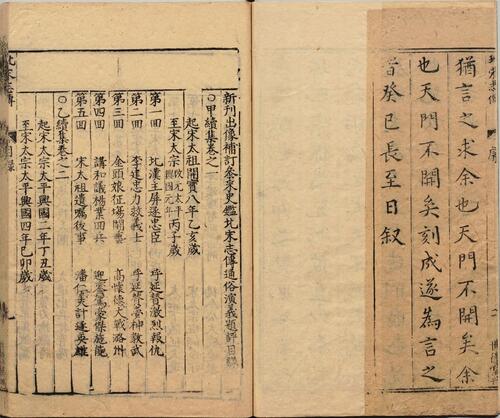 猶言之求余也天門不開矣余
也天門不開矣刻成遂為言之
旹癸巳長至日叙
新刊出像補訂叅采史鑑北宋志傳通俗演義題評目錄
○甲續集卷之一
起宋太祖開寶八年乙亥歲
至宋太宗改元太平興國元年丙子歲
第一回 北漢主屏逐忠臣 呼延贊激烈報仇
第二回 李建忠力救義士 呼延贊夢神教武
第三回 金頭娘征場鬥藝 高懷德大戰潞州
第四回 講和議楊業回兵 迎鑾駕豪傑施能
第五回 宋太祖遺囑後事 潘仁美計逐英雄
○乙續集卷之二
起宋太宗太平興國二年丁丑歲
至宋太宗太平興國四年己卯歲